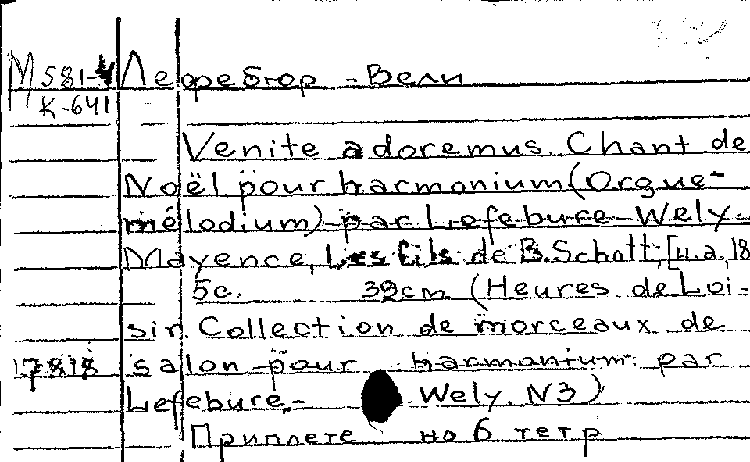 М 581-4 Лефебюр - Вели
К-641
Venite adoremus. Chant de
Noël pour harmonium (Orgue-
mélodium) par Lefebure-Wely-
Mayence, Les fils de B. Schott, [u.a, 18
5c. 39cm (Heures de Loi-
sir. Collection de morceaux de
17818 salon pour harmonium. par
Lefebure- Wely. N3)
Приплете но 6 тетр